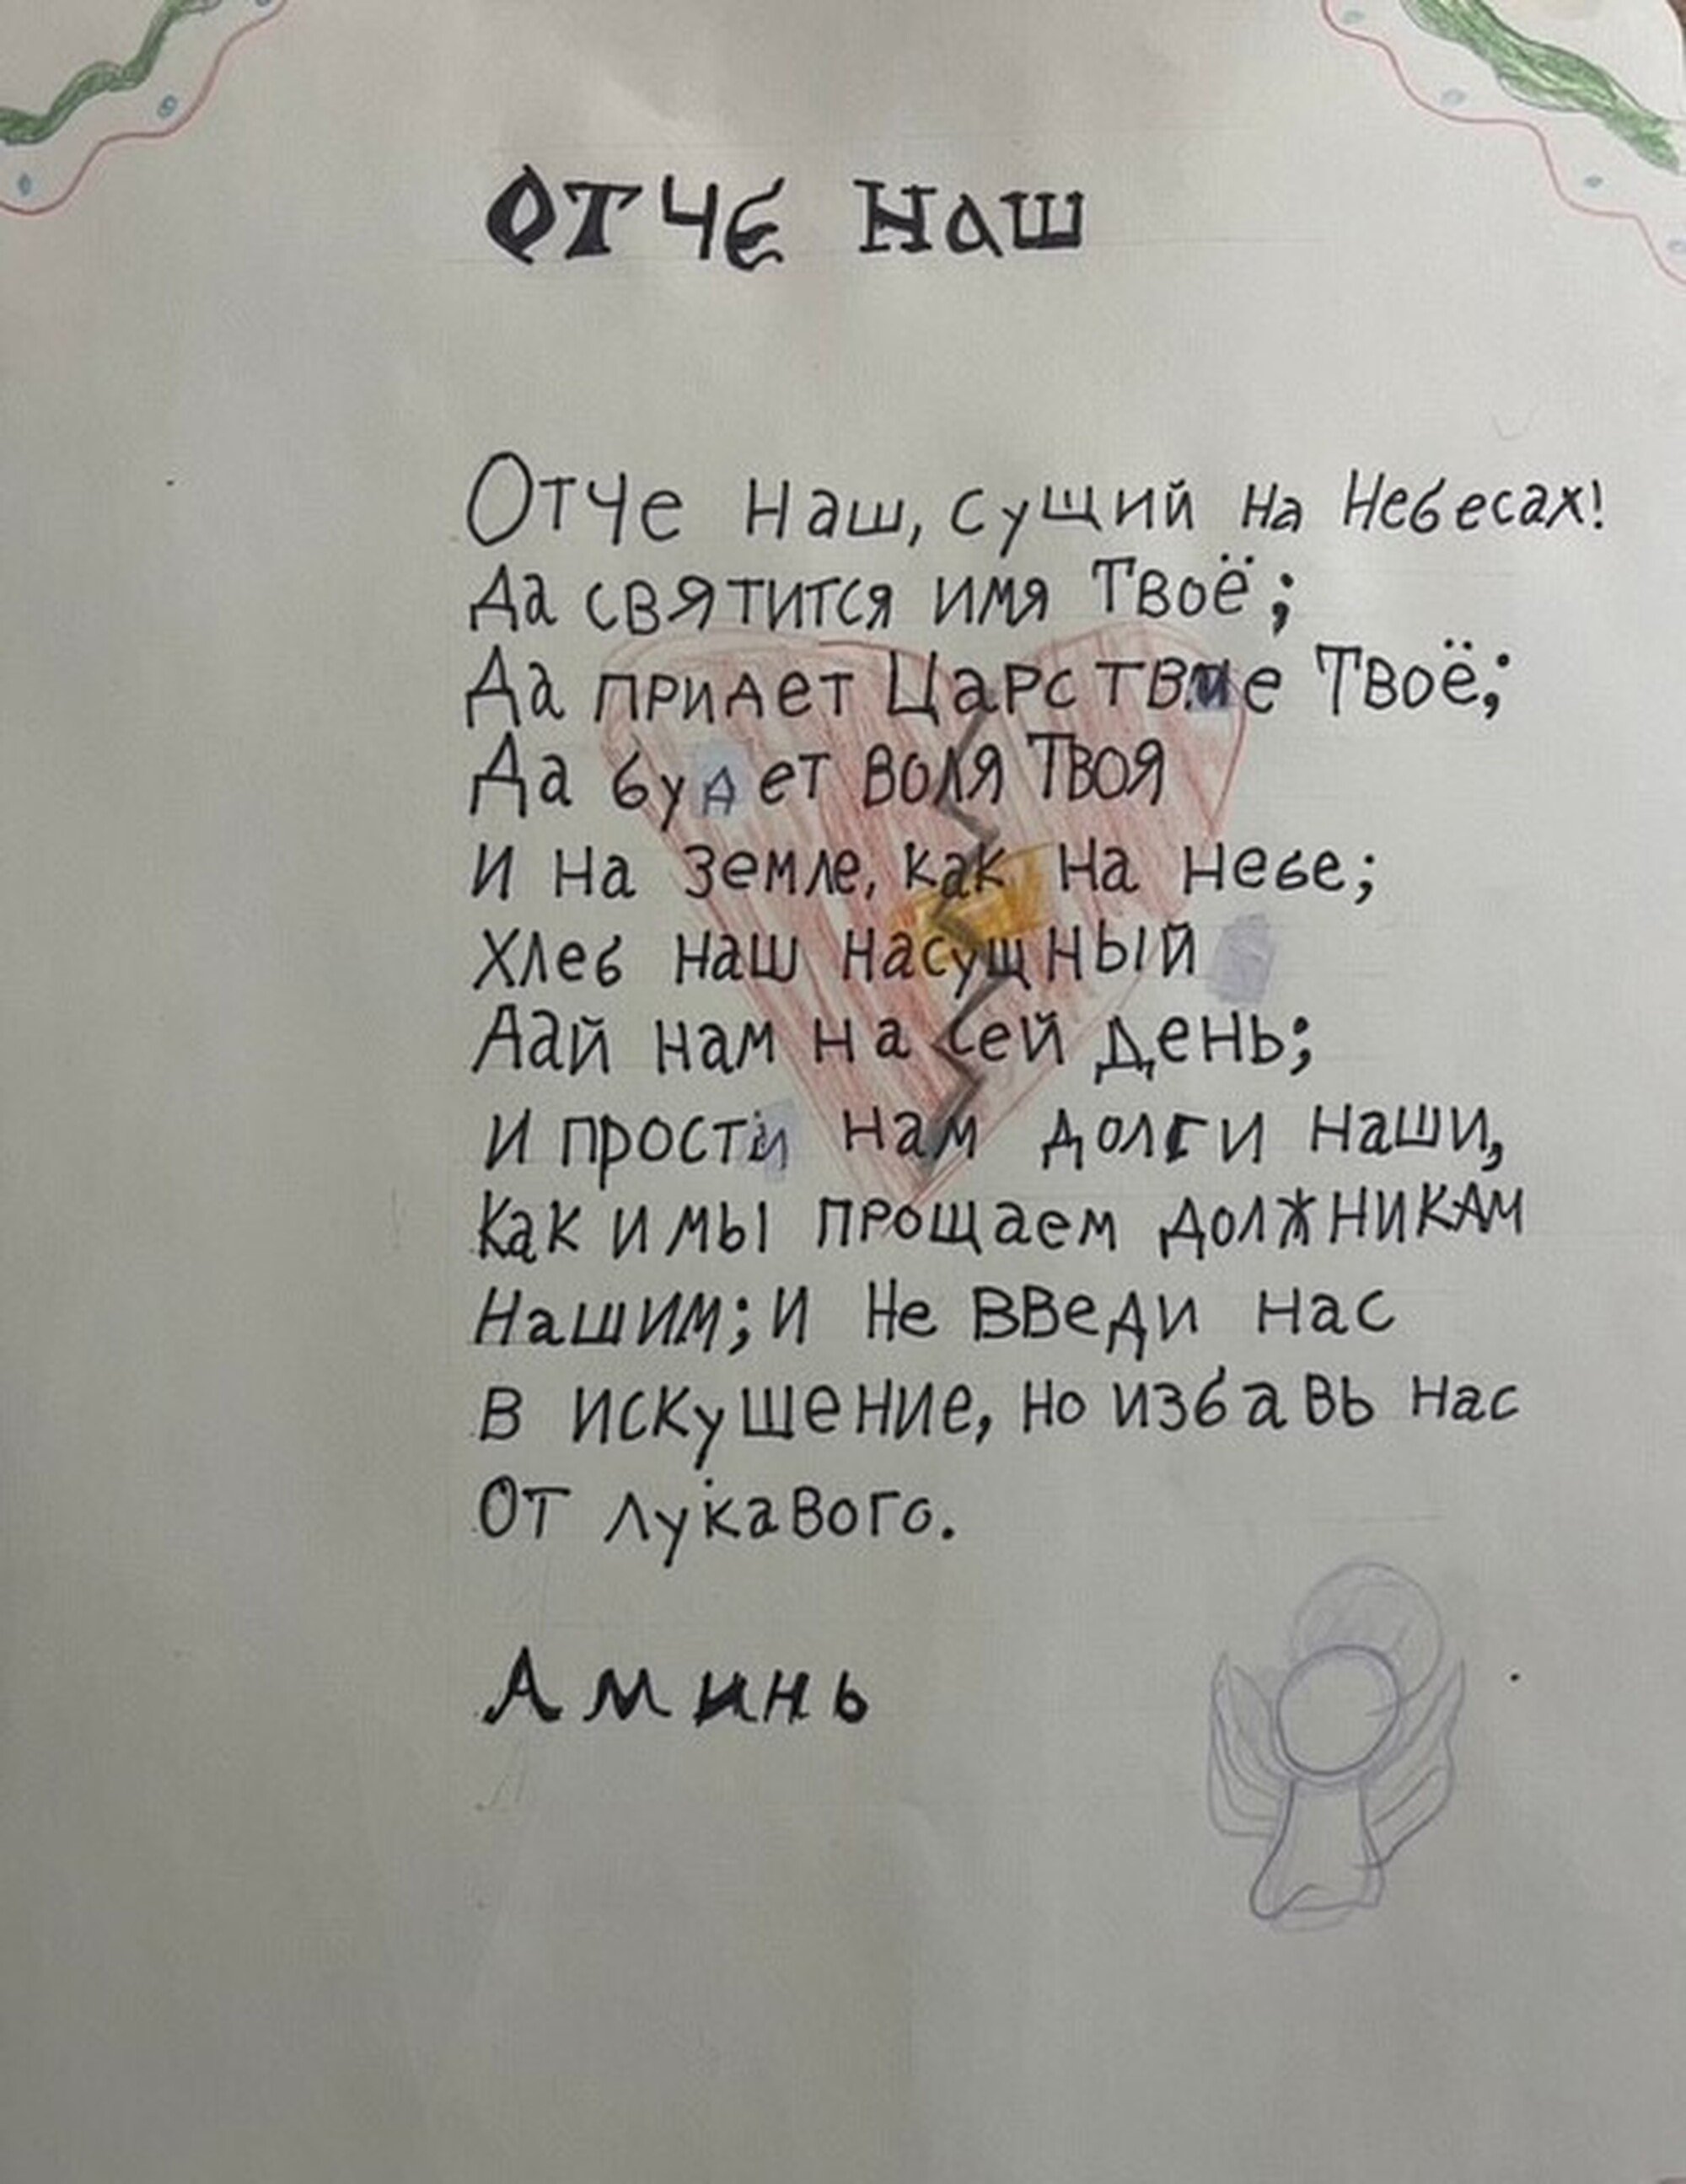 ОТЧЕ НАШ
Отче Наш, сущий на Небесах!
Да святится имя Твоё;
Да придет Царствие Твоё;
Да будет воля Твоя
И на земле, как на небе;
Хлеб наш насущный
Дай нам на сей день;
И прости нам долги наши,
Как и мы прощаем должникам
Нашим; и не введи нас
в искушение, но избавь нас
От лукавого.
Аминь